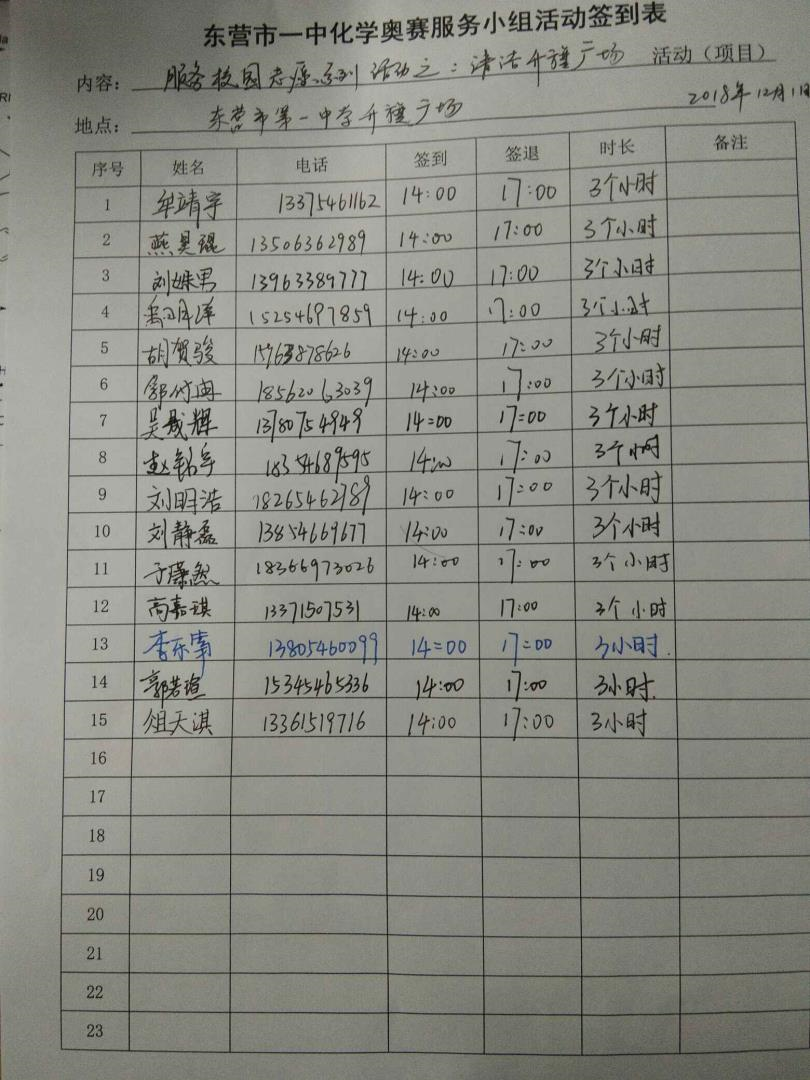 东营市一中化学奥赛服务小组活动签到表
内容: 服务校园志愿系列活动之:清洁升旗广场 活动(项目)
地点: 东营市第一中学升旗广场 2018年12月1日
序号 姓名 电话 签到 签退 时长 备注
1 牟靖宇 13375461162 14:00 17:00 3个小时
2 燕昊琨 13506362989 14:00 17:00 3个小时
3 刘姝男 13963389777 14:00 17:00 3个小时
4 15254697859 14:00 17:00 3个小时
5 胡贺骏 14:00 17:00 3个小时
6 18562063039 14:00 17:00 3个小时
7 吴晟辉 13780754949 14:00 17:00 3个小时
8 赵铭宇 18354689595 14:00 17:00 3个小时
9 刘明浩 18265462789 14:00 17:00 3个小时
10 刘静磊 13854669677 14:00 17:00 3个小时
11 于康然 18366973026 14:00 17:00 3个小时
12 高嘉琪 13371507531 14:00 17:00 3个小时
13 李乐 13805460099 14=00 17=00 3小时.
14 郭若瑄 15345465336 14:00 17:00 3小时.
15 俎天淇 13361519716 14:00 17:00 3小时
16
17
18
19
20
21
22
23